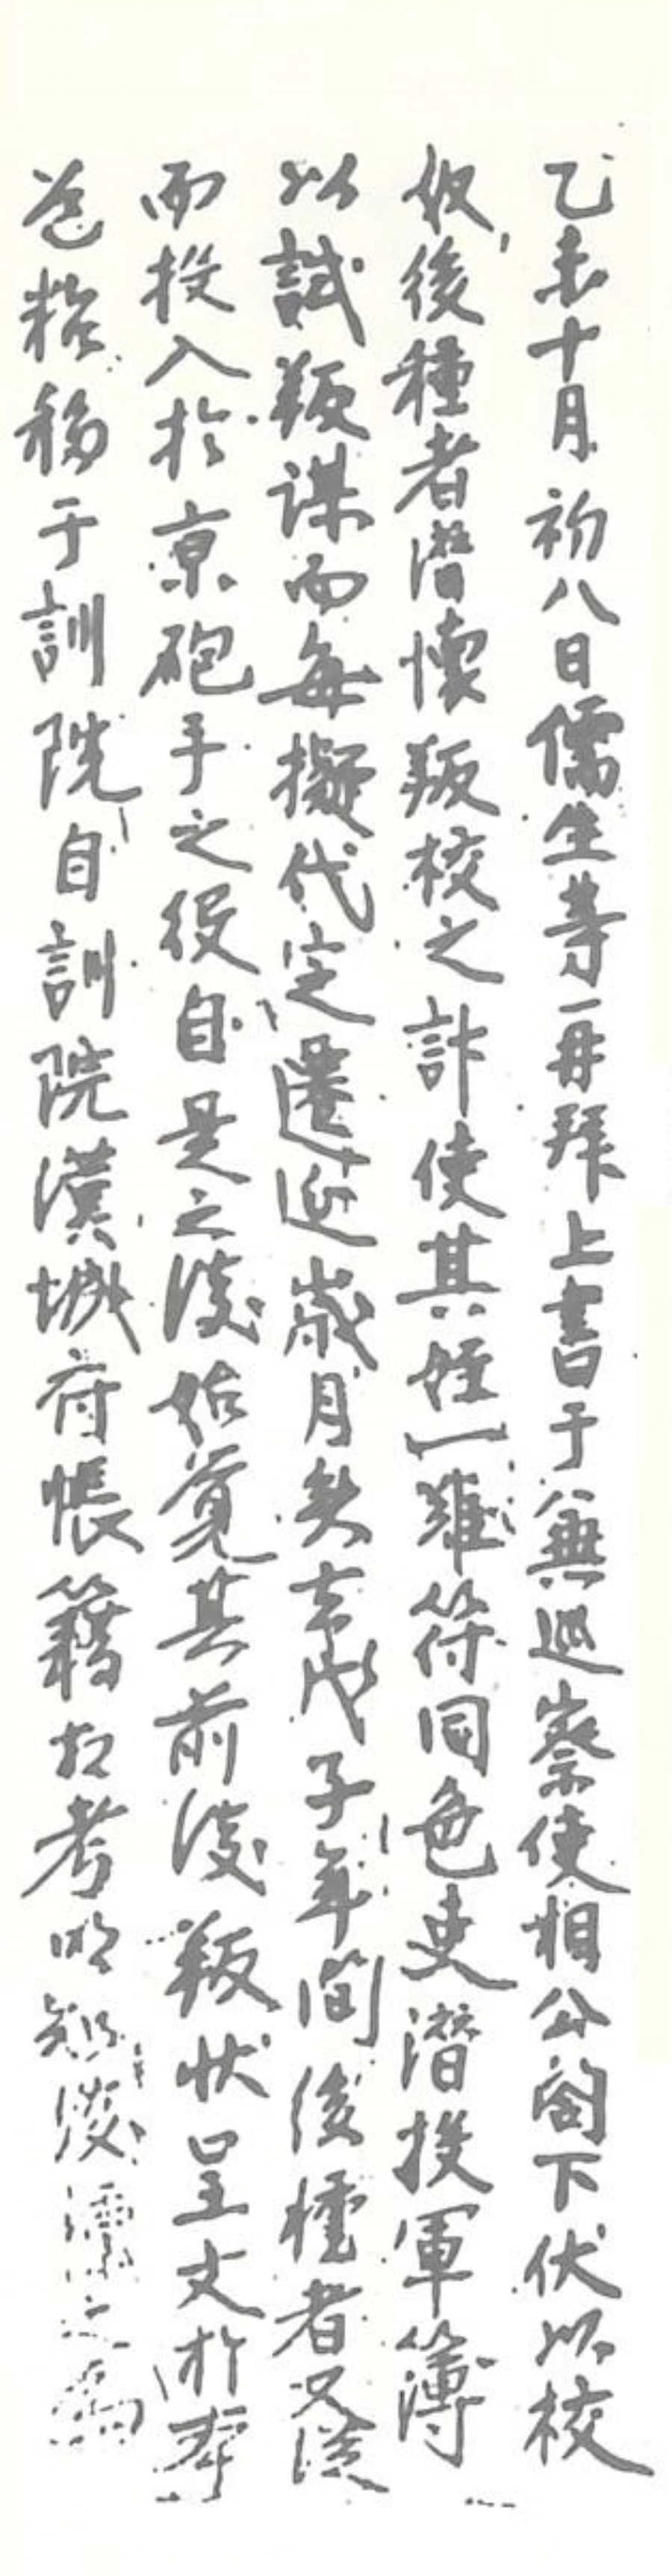 乙未十月初八日儒生等再拜上書于兼巡察使相公閤下伏以校
奴後種者潛懷叛校之計使其姪一雄符同色吏潛投軍簿
以試叛謀而每擬代定遷延歲月矣去戊子年間後種者又從
而投入於京砲手之役自是之後始覺其前後叛狀呈文於本
邑粘移于訓院自訓院漢城府帳籍相考明知後